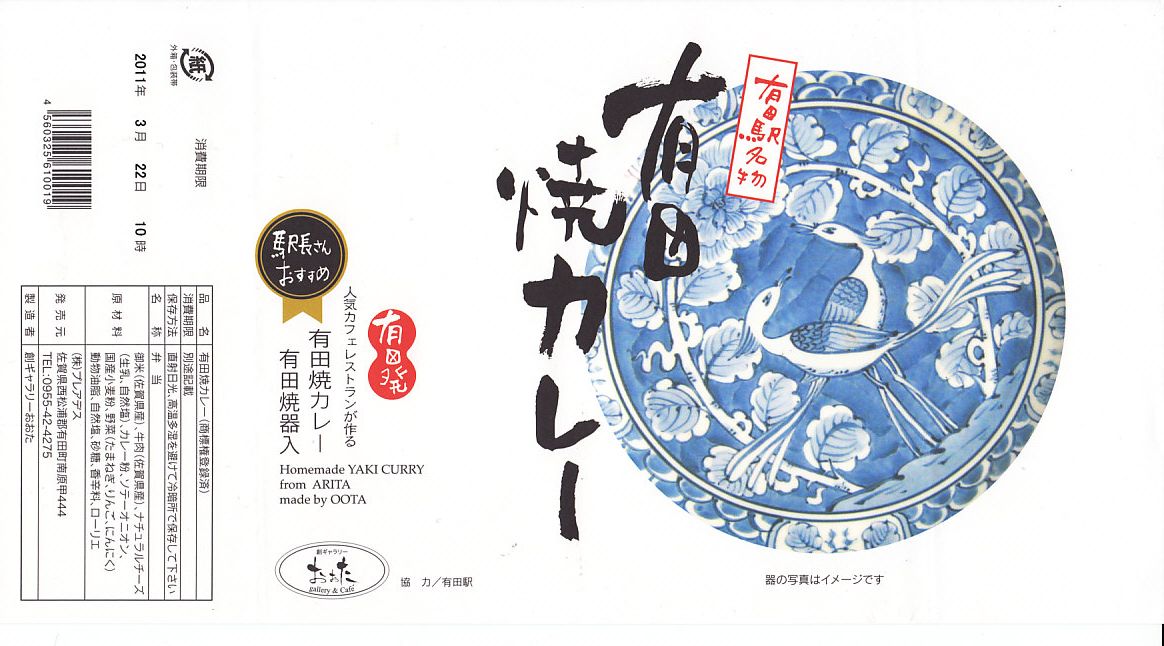 有田駅名物
有田
焼カレー
器の写真はイメージです
駅長さん
おすすめ
有田焼
人気カフェレストランが作る
有田焼カレー
有田焼器入
Homemade YAKI CURRY
from ARITA
made by OOTA
創ギャラリー
おおた
gallery & Café
協 力／有田駅
紙
外箱・包装帯
消費期限
2011年 3月 22日 10時
4 560325 610019
品名 有田焼カレー(商標権登録済)
消費期限 別途記載
保存方法 直射日光、高温多湿を避けて冷暗所で保存して下さい
名称 弁当
原材料 御米(佐賀県産)、牛肉(佐賀県産)、ナチュラルチーズ
(生乳、自然塩)、カレー粉、ソテーオニオン、
国産小麦粉、野菜(たまねぎ、りんご、にんにく)
動物油脂、自然塩、砂糖、香辛料、ローリエ
発売元 (株)プレアデス
佐賀県西松浦郡有田町南原甲444
TEL:0955-42-4275
製造者 創ギャラリーおおた